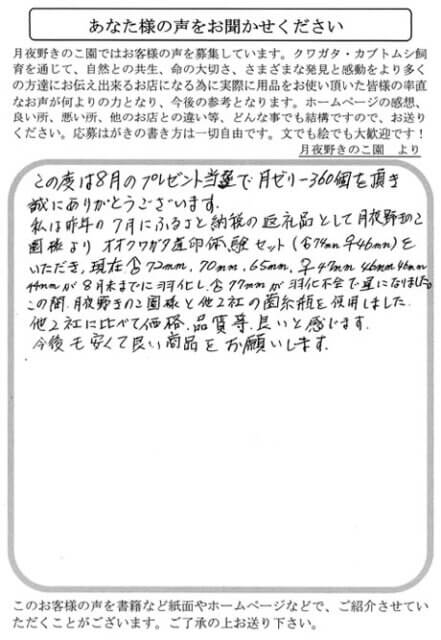 あなた様の声をお聞かせください
月夜野きのこ園ではお客様の声を募集しています。クワガタ・カブトムシ飼
育を通じて、自然との共生、命の大切さ、さまざまな発見と感動をより多く
の方達にお伝え出来るお店になる為に実際に用品をお使い頂いた皆様の率直
なお声が何よりの力となり、今後の参考となります。ホームページの感想、
良い所、悪い所、他のお店との違い等、どんな事でも結構ですので、お送り
ください。応募はがきの書き方は一切自由です。文でも絵でも大歓迎です！
月夜野きのこ園　より
この度は8月のプレゼント当選で月ゼリー360個を頂き
誠にありがとうございます。
私は昨年の7月にふるさと納税の返礼品として月夜野きのこ
園様よりオオクワガタ産卵体験セット(♂74mm♀46mm)を
いただき、現在♂72mm,70mm,65mm,♀47mm 46mm 46mm
44mmが8月末までに羽化し、♂77mmが羽化不全で星になりました。
この間、月夜野きのこ園様と他2社の菌糸瓶を使用しました。
他2社に比べて価格、品質等、良いと感じます。
今後も安くて良い商品をお願いします。
このお客様の声を書籍など紙面やホームページなどで、ご紹介させてい
ただくことがございます。ご了承の上お送り下さい。